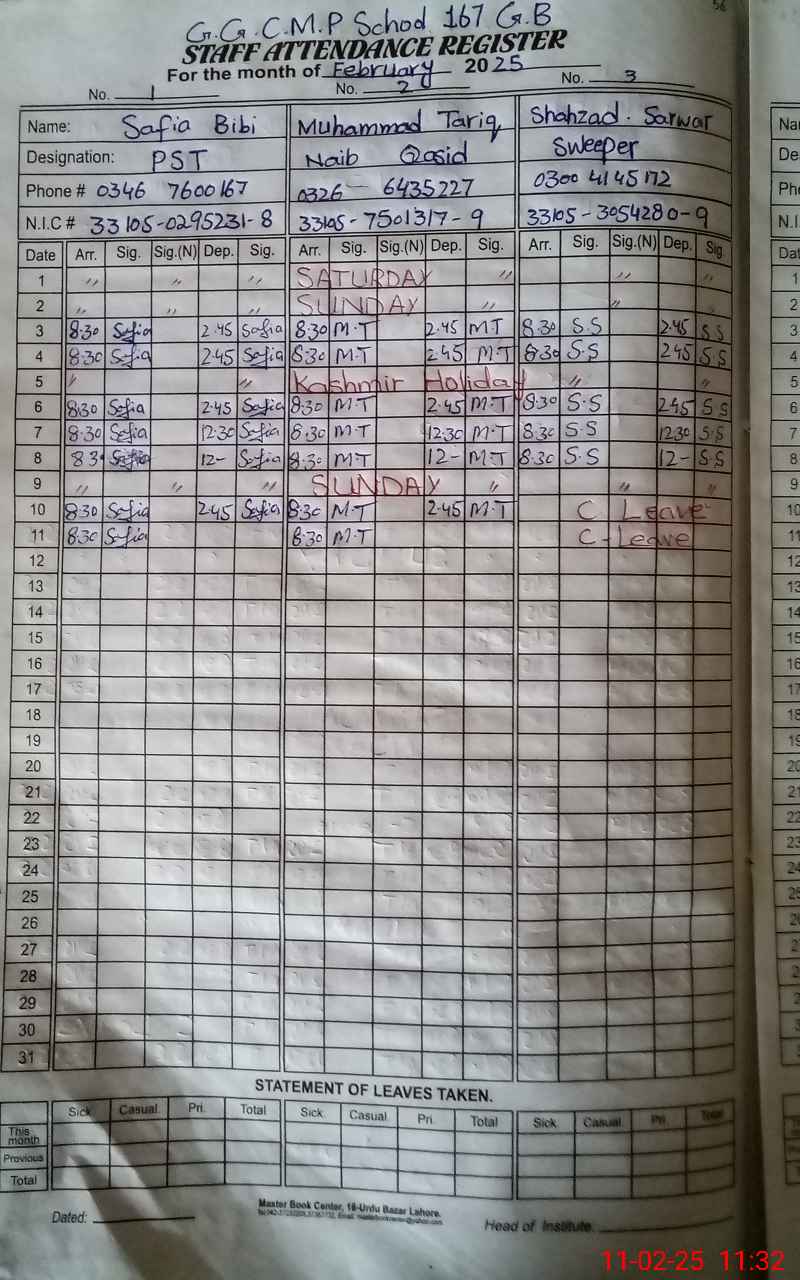 56
G.G.C.M.P School 167 G.B
STAFF ATTENDANCE REGISTER
For the month of February 2025
No. 1 No. 2 No. 3
Name: Safia Bibi Muhammad Tariq Shahzad. Sarwar
Designation: PST Naib Qasid Sweeper
Phone # 0346 7600167 0326 - 6435227 0300 4145172
N.I.C # 33105-0295231-8 33105-7501317-9 33105-3054280-9
Date Arr. Sig. Sig.(N) Dep. Sig. Arr. Sig. Sig.(N) Dep. Sig. Arr. Sig. Sig.(N) Dep. Sig.
1 " " " SATURDAY " " "
2 " " " SUNDAY " "
3 8:30 Safia 2.45 Safia 8:30 M.T 2.45 MT 8:30 S.S 2.45 S S
4 8:30 Safia 2.45 Safia 8:30 M.T 2.45 M.T 8:30 S.S 2.45 S.S
5 " " Kashmir Holiday " "
6 8:30 Safia 2.45 Safia 8:30 M.T 2.45 M.T 8:30 S.S 2.45 S S
7 8:30 Safia 12:30 Safia 8:30 M.T 12:30 M.T 8:30 S.S 12:30 S.S
8 8 3 Safia 12- Safia 8:30 M.T 12- M.T 8:30 S.S 12- S.S
9 " " " SUNDAY " " "
10 8:30 Safia 2.45 Safia 8:30 M.T 2.45 M.T C Leave
11 8:30 Safia 8:30 M.T C-Leave
12
13
14
15
16
17
18
19
20
21
22
23
24
25
26
27
28
29
30
31
STATEMENT OF LEAVES TAKEN.
Sick Casual Pri. Total Sick Casual Pri. Total Sick Casual Pri. Total
This month
Previous
Total
Master Book Center, 16-Urdu Bazar Lahore.
Dated: Head of Institute.
11-02-25 11:32